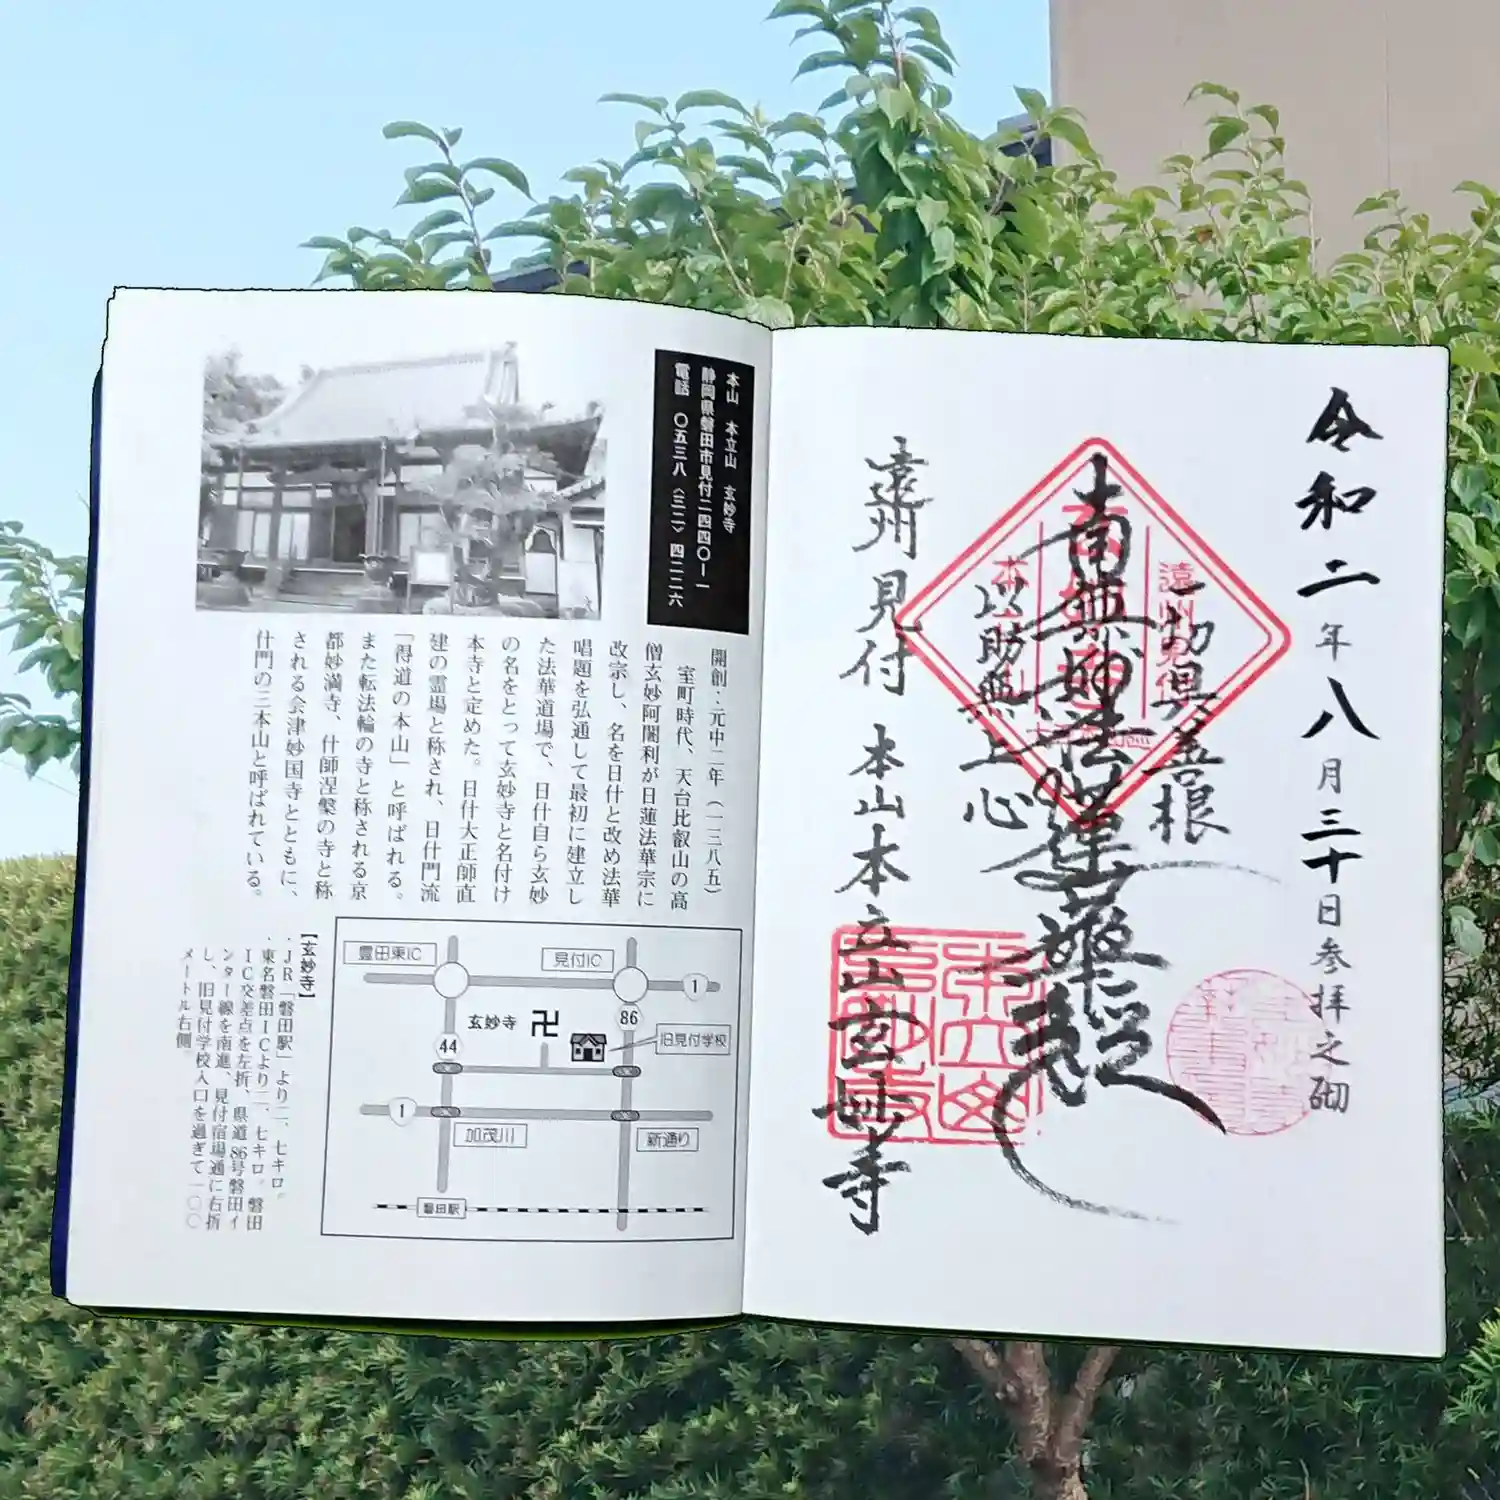 令和二年八月三十日参拝之砌
一切具善根
南無妙法蓮華経
以助無上心
遠州見付 本山本立山玄妙寺
遠州見付
本山 本立山 玄妙寺
静岡県磐田市見付二四四〇ー一
電話 〇五三八(三二)四二二六
開創:元中二年(一三八五)
室町時代、天台比叡山の高
僧玄妙阿闍利が日蓮法華宗に
改宗し、名を日什と改め法華
唱題を弘通して最初に建立し
た法華道場で、日什自ら玄妙
の名をとって玄妙寺と名付け
本寺と定めた。日什大正師直
建の霊場と称され、日什門流
「得道の本山」と呼ばれる。
また転法輪の寺と称される京
都妙満寺、什師涅槃の寺と称
される会津妙国寺とともに、
什門の三本山と呼ばれている。
豊田東IC
見付IC
1
86
玄妙寺
卍
旧見付学校
44
1
加茂川
新通り
磐田駅
【玄妙寺】
・JR「磐田駅」より二、七キロ。
・東名磐田ICより二、七キロ。磐田
IC交差点を左折、県道86号磐田イ
ンター線を南進、見付宿場通に右折
し、旧見付学校入口を過ぎて一〇〇
メートル右側。